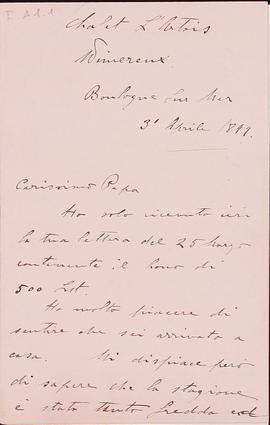 I A.1.1
Chalet L'Artois
Wimereux
Boulogne Sur Mer
3° Aprile 1899.
Carissimo Papa
Ho solo ricevuto ieri
la tua lettera del 25 Marzo
contenente il bono di
500 Lst.
Ho molto piacere di
sentire che sei arrivato a
casa. Mi dispiace però
di sapere che la stagione
è stata tanto fredda ed